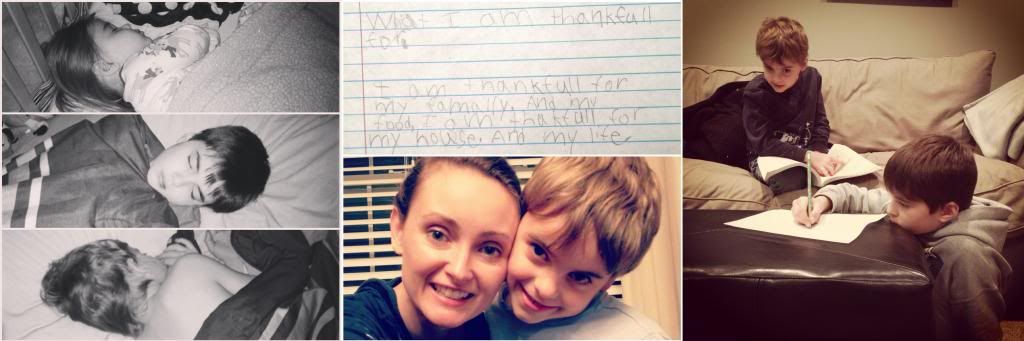 What I am thankfull
for.
I am thankfull for
my famally. And my
food, I am thatfull for
my house. Am my life.